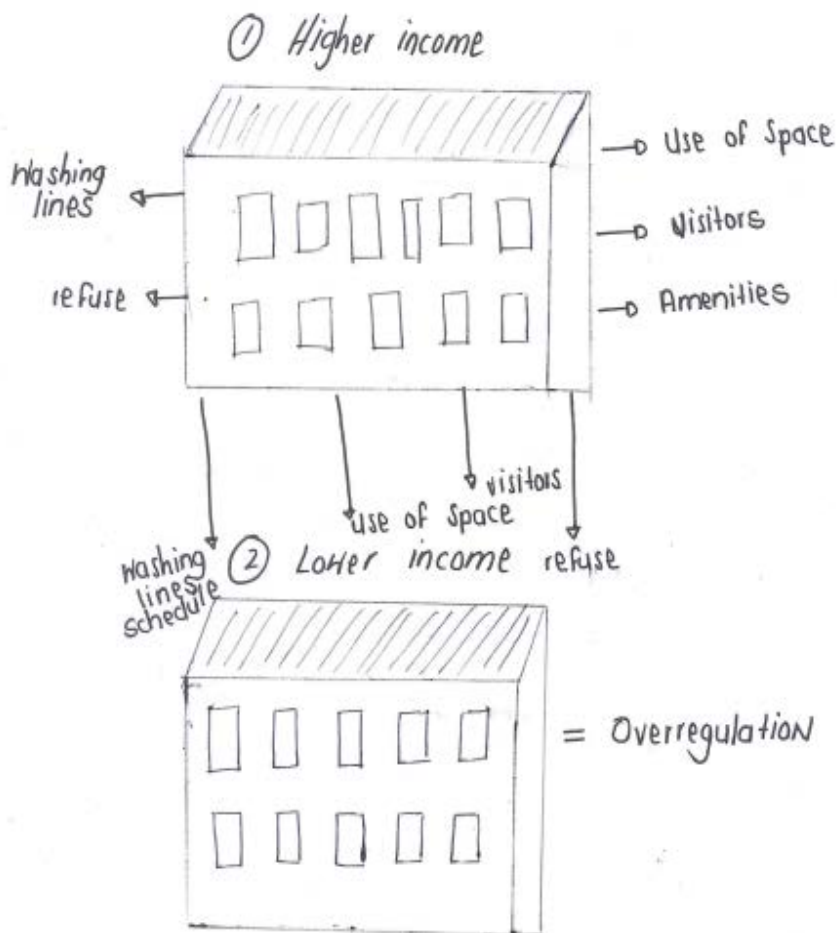 ① Higher income
Washing
lines
refuse
Use of Space
Visitors
Amenities
visitors
use of space
refuse
Washing
lines
schedule
② Lower income
= Overregulation